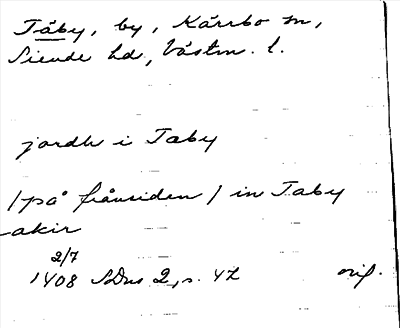 Täby, by, Kärrbo sn,
Siende hd, Västm. l.
jordh i Taby
/på frånsiden/ in Taby
akir
2/7
1408 SDns 2, s. 42
orig.